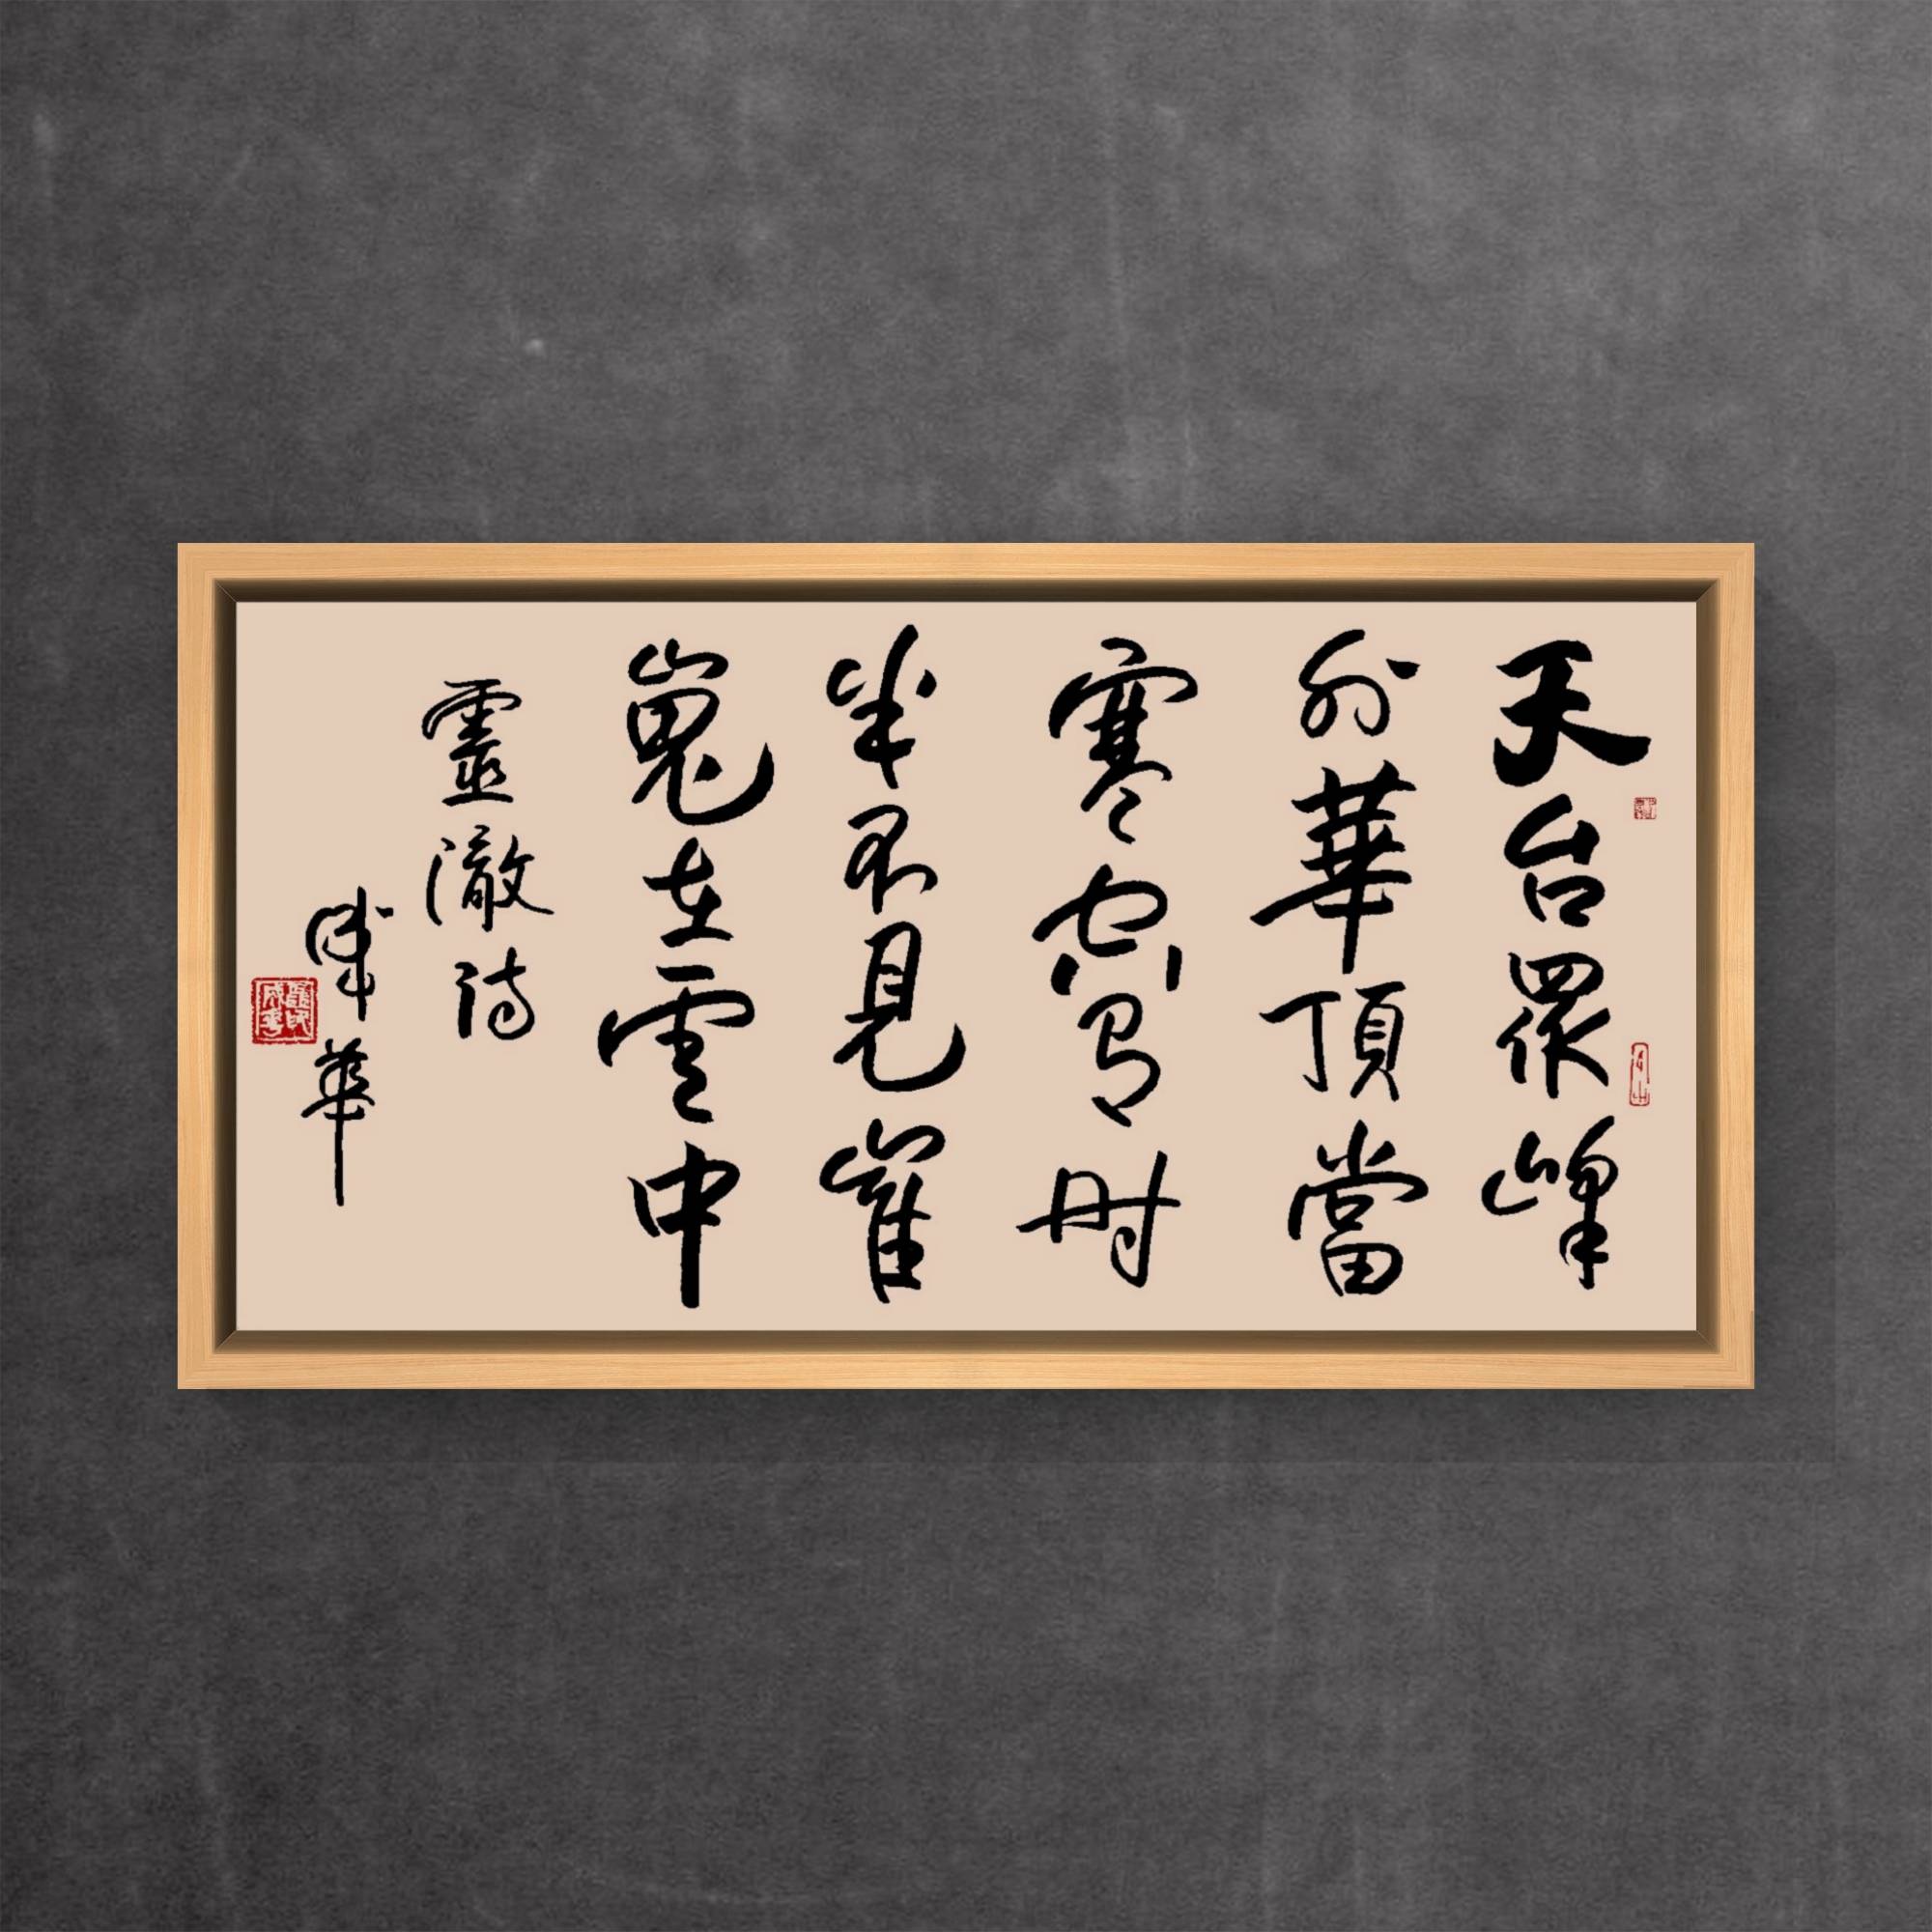 天台眾峰
外華頂當
寒空有时
半不見崔
嵬在雲中
靈澈诗
華